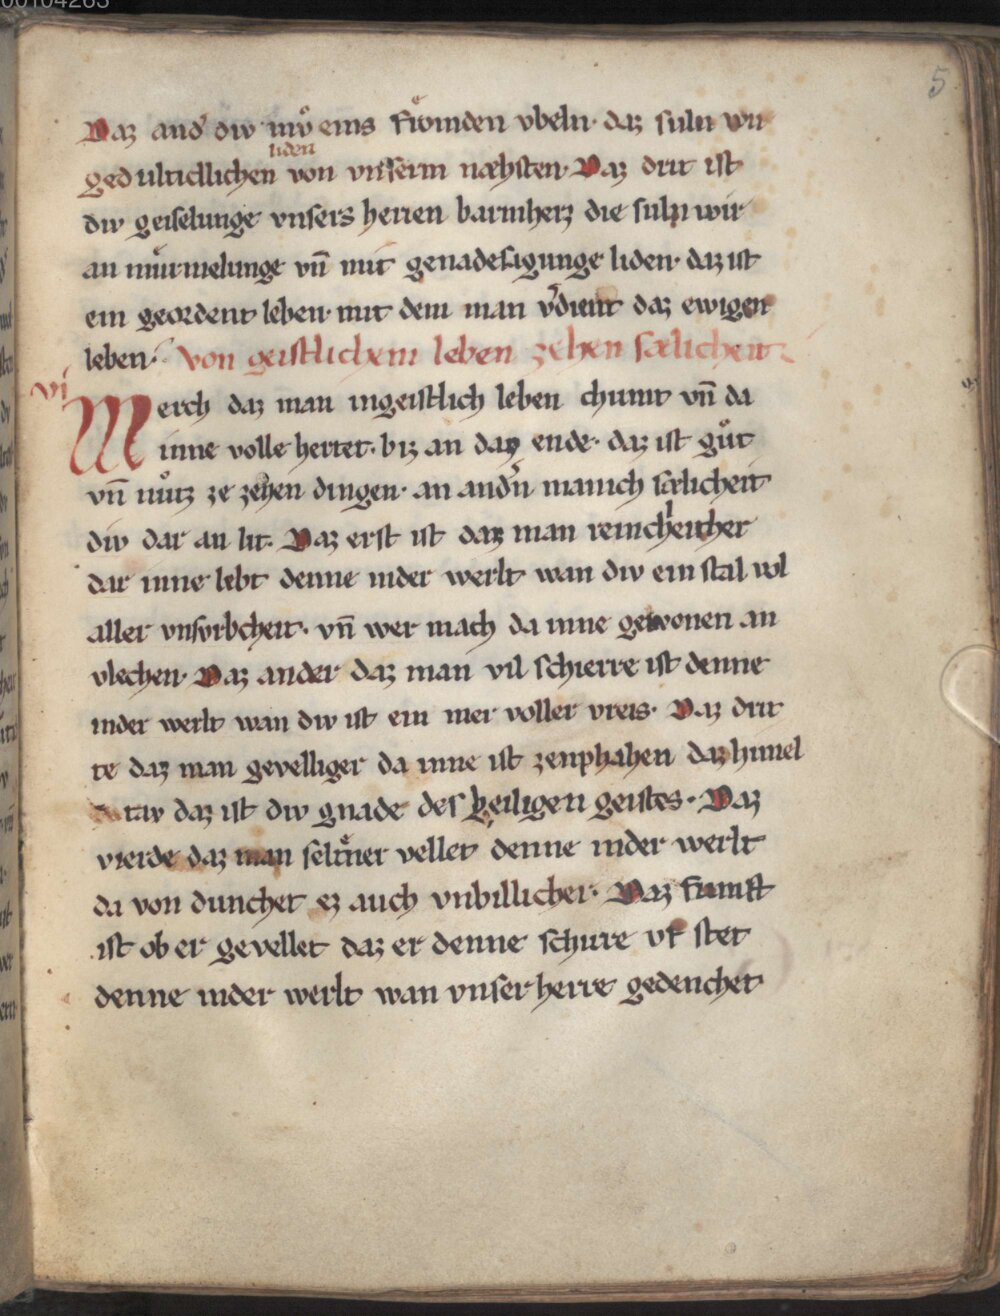 00104265
5
Daz and͛ div mvͦ eins froͤmden vbeln· daz suln wir
liden
gedultichlichen von vnserm næhsten· Daz drit ist
div geiselunge vnsers herren barmherz die suln wir
an murmelunge vn̄ mit genadesagunge liden· daz ist
ein geordent leben· mit dem man v͛dient daz ewigen
leben· Von geistlichem leben zehen sælicheit
vi
Merch daz man ingeistlich leben chumt vn̄ da
inne volle hertet· biz an daz ende· daz ist guͦt
vn̄ nuͦtz ze zehen dingen· an and͛n manich sælicheit
div dar an lit· Daz erst ist daz man reinchlicher
dar inne lebt denne inder werlt wan div ein stal vol
aller vnsvbcheit· vn̄ wer mach da inne gewonen an
vlechen· Daz ander daz man vil schierre ist denne
inder werlt wan div ist ein mer voller vreis· Daz drit
te daz man gevelliger da inne ist zenphahen daz himel
tav daz ist div gnade des heiligen geistes· Daz
vierde daz man seltner vellet denne inder werlt
da von dunchet ez auch vnbillicher· Daz fumft
ist ob er gevellet daz er denne schire vf stet
denne inder werlt wan vnser herre gedenchet